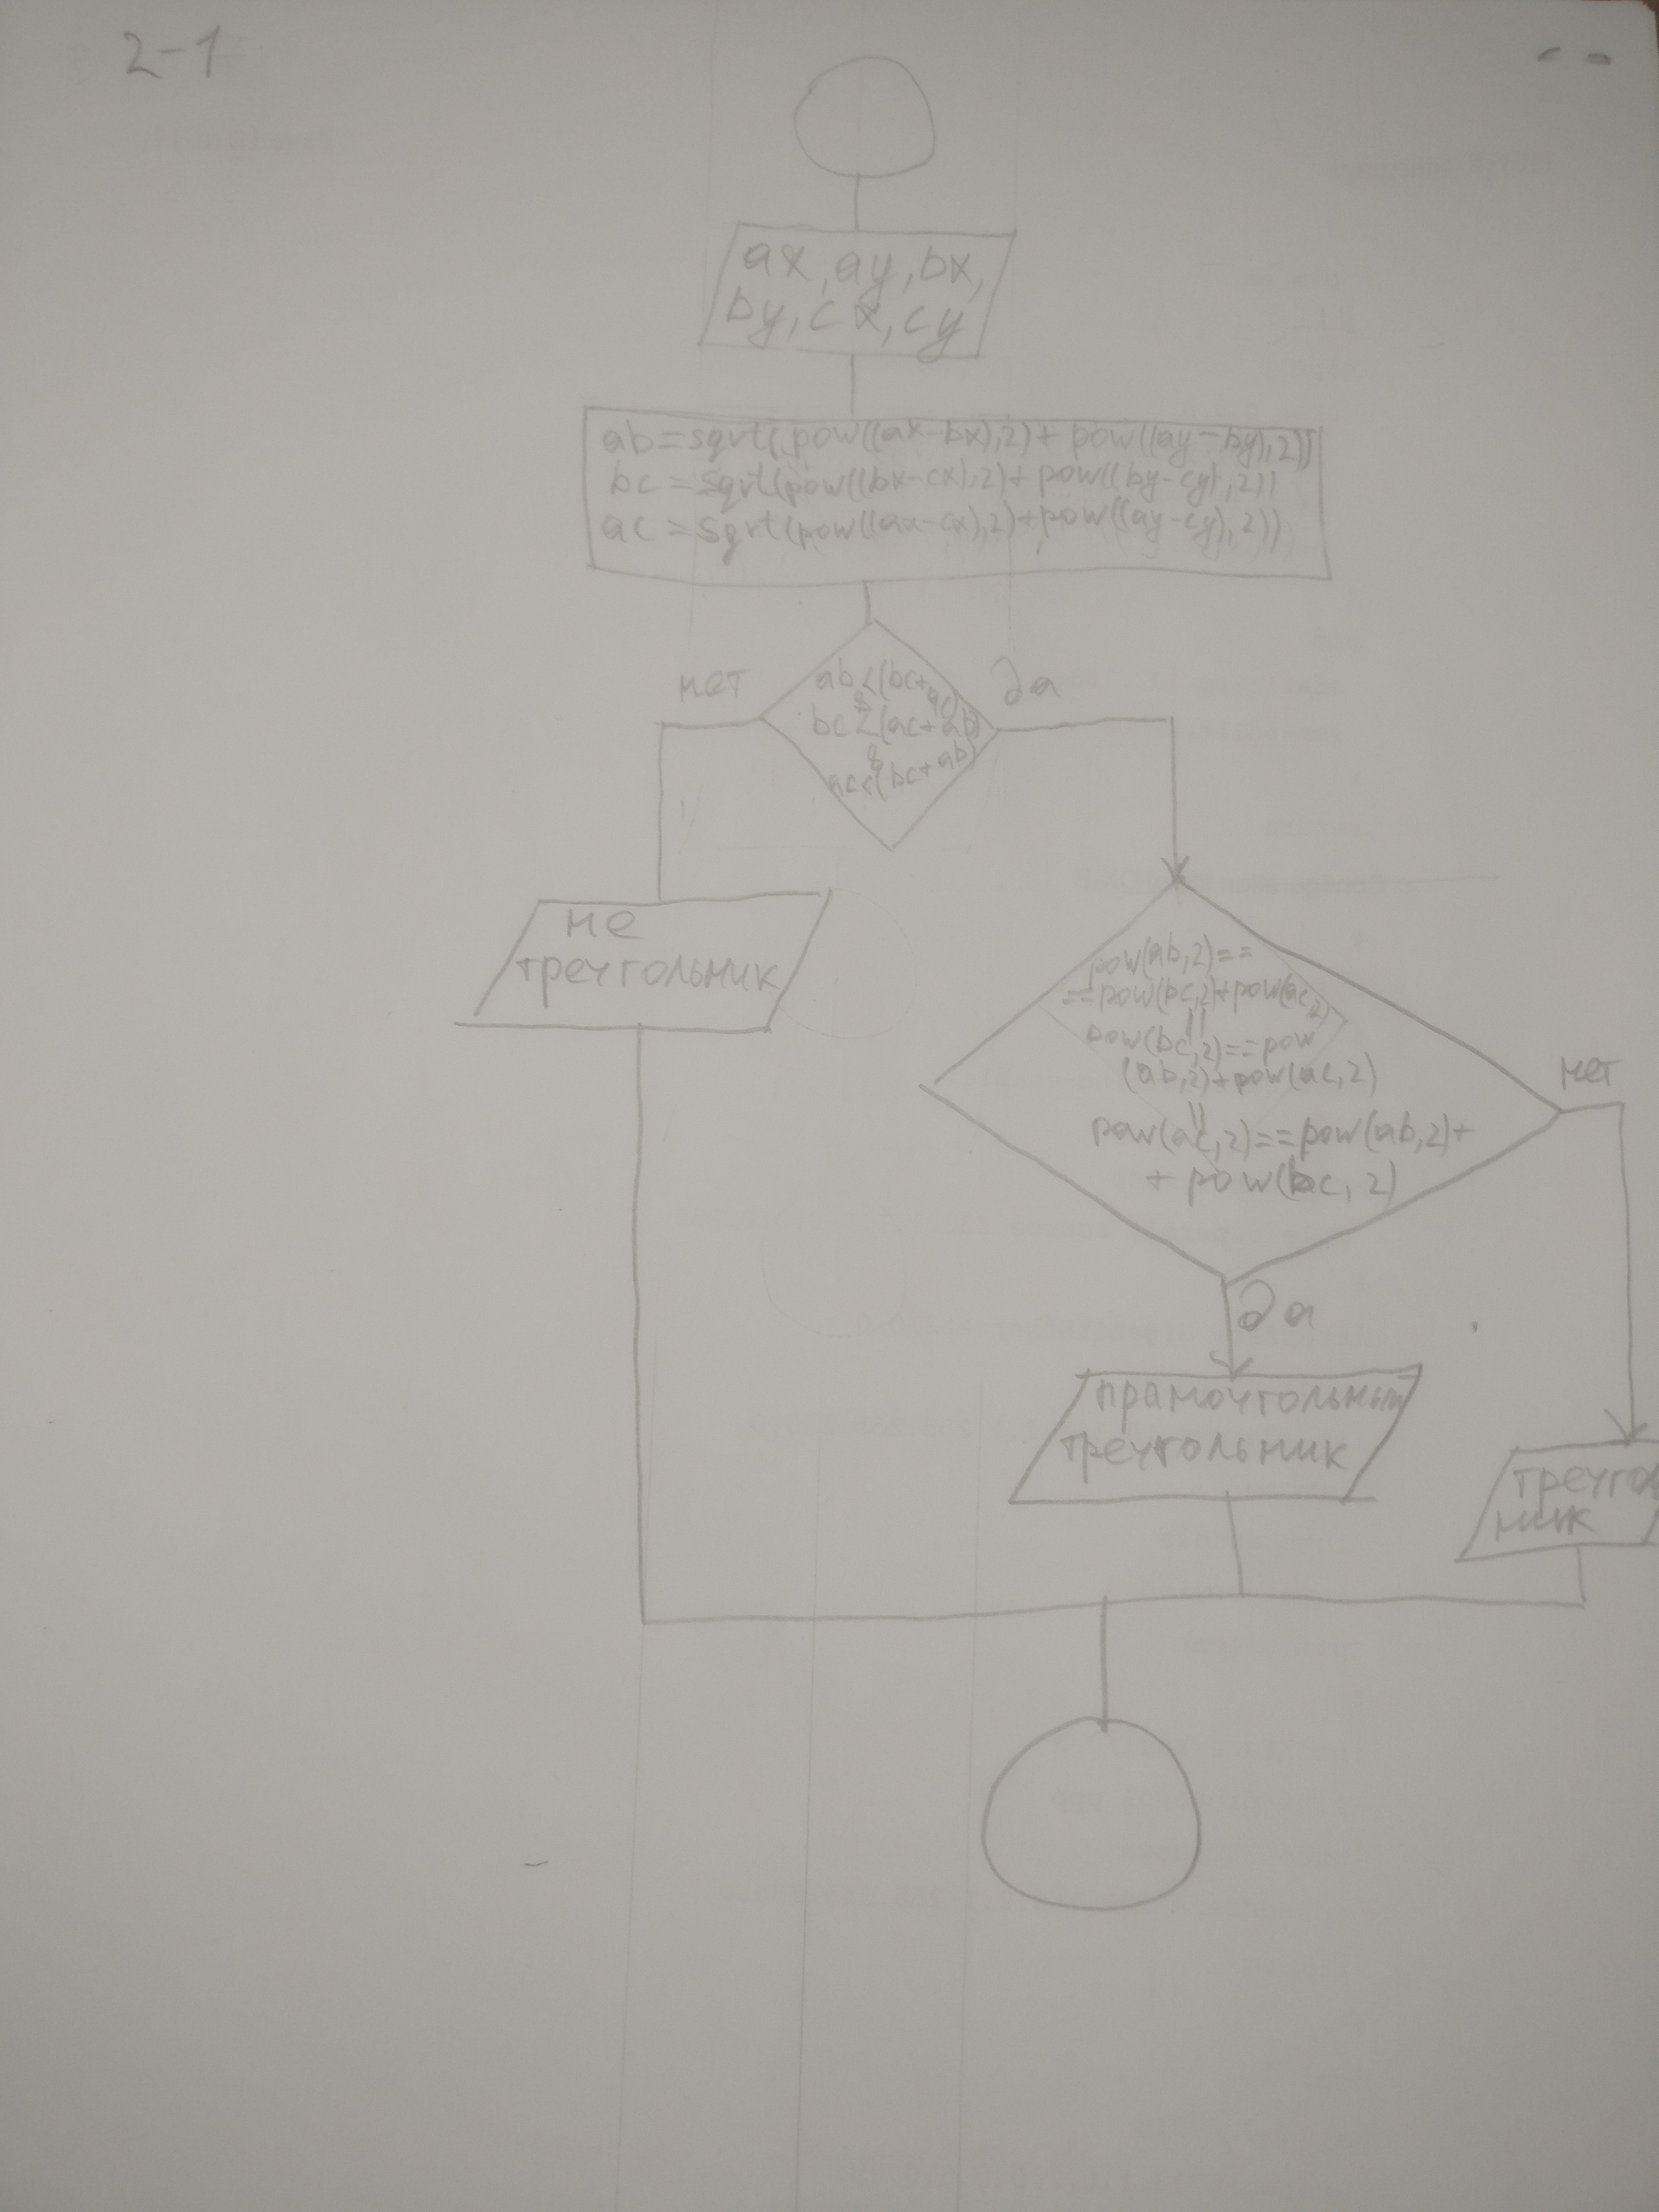 2-1
ax, ay, bx,
by, cx, cy
ab=sqrt(pow((ax-bx),2)+pow((ay-by),2))
bc=sqrt(pow((bx-cx),2)+pow((by-cy),2))
ac=sqrt(pow((ax-cx),2)+pow((ay-cy),2))
нет
да
ab<(bc+ac)
&
bc<(ac+ab)
&
ac<(bc+ab)
не
треугольник
pow(ab,2)==
==pow(bc,2)+pow(ac,2)
||
pow(bc,2)==pow
(ab,2)+pow(ac,2)
||
pow(ac,2)==pow(ab,2)+
+pow(bc,2)
нет
да
прамоугольный
треугольник
треугол
ник